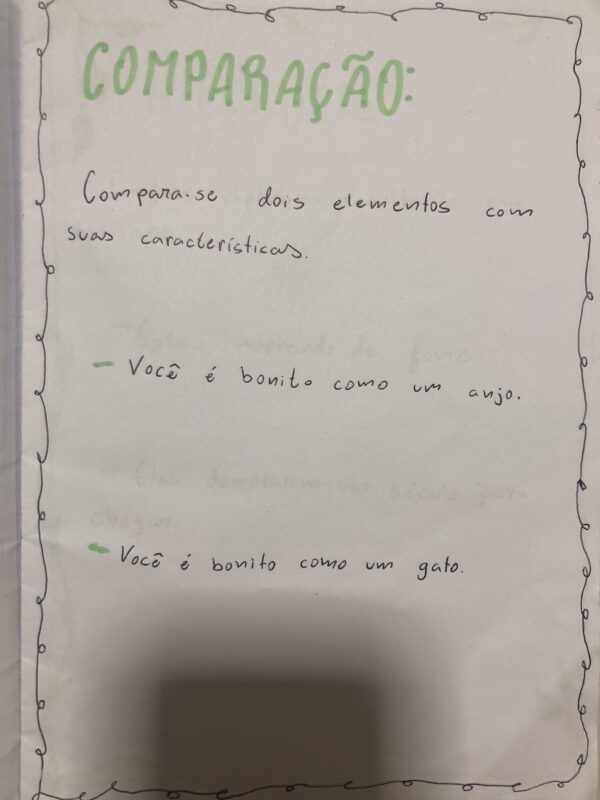 COMPARAÇÃO:
Compara-se dois elementos com
suas características.
- Você é bonito como um anjo.
- Você é bonito como um gato.